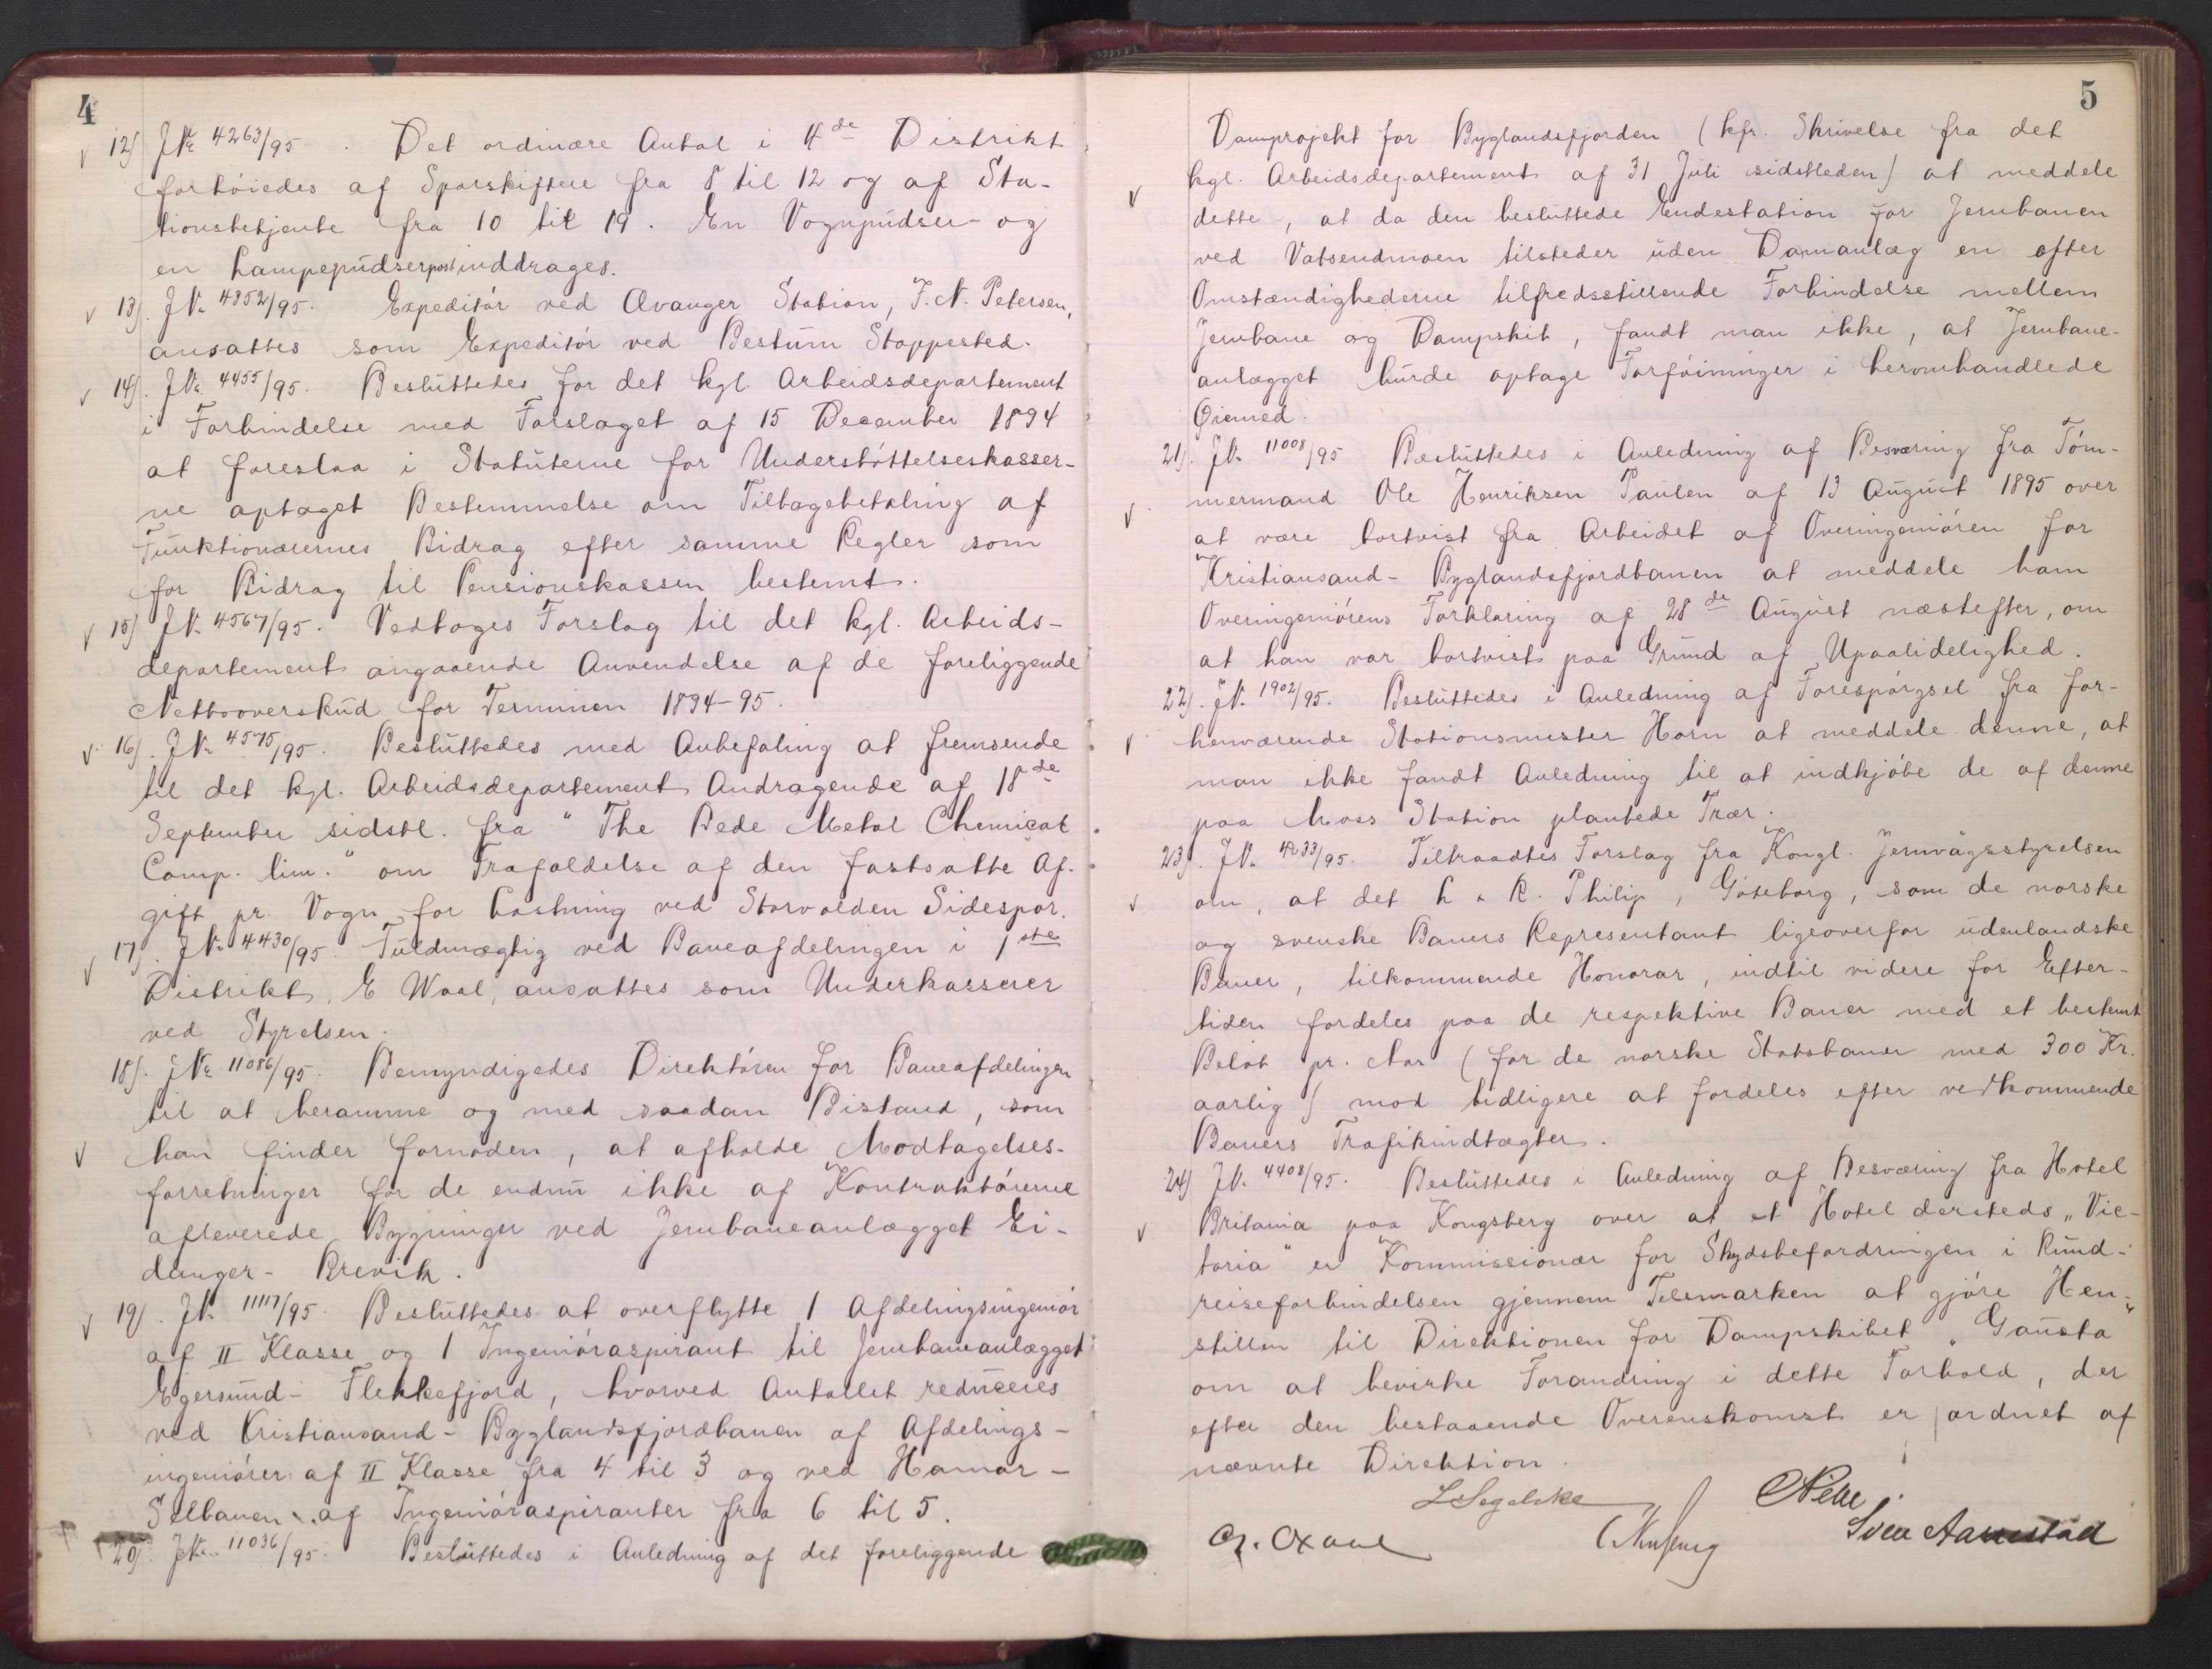 4
12) JNr 4263/95. Det ordinære Antal i 4de Distrikt
forhöiedes af Sporskiftere fra 8 til 12 og af Sta-
tionsbetjente fra 10 til 19. En Vognpudser- og
en Lampepudserpost inddrages.
13). JNr 4352/95. Expeditör ved Avanger Station, J. N. Petersen,
ansattes som Expeditör ved Bestum Stoppested.
14). JNr 4455/95. Besluttedes for det kgl. Arbeidsdepartement
i Forbindelse med Forslaget af 15 December 1894
at foreslaa i Statuterne for Understöttelseskasser-
ne optaget Bestemmelse om Tilbagebetaling af
Funktionærernes Bidrag efter samme Regler som
for Bidrag til Pensionskassen bestemt.
15) JNr 4567/95. Vedtoges Forslag til det kgl. Arbeids-
departement angaaende Anvendelse af de foreliggende
Nettooverskud for Terminen 1894-95.
16). JNr 4575/95. Besluttedes med Anbefaling at fremsende
til det kgl. Arbeidsdepartement Andragende af 18de
September sidstl. fra "The Bede Metal Chemical
Comp. lim." om Frafaldelse af den fastsatte Af-
gift pr. Vogn for Lastning ved Storvolden Sidespor.
17). JNr 4430/95. Fuldmægtig ved Baneafdelingen i 1ste
Distrikt, E Waal, ansattes som Underkasserer
ved Styrelsen.
18). JNr 11086/95. Bemyndigedes Direktören for Baneafdelingen
til at beramme og med saadan Bistand, som
han finder fornöden, at afholde Modtagelses-
forretninger for de endnu ikke af Kontraktörerne
afleverede Bygninger ved Jernbaneanlægget Ei-
danger- Brevik.
19). JNr. 11117/95. Besluttedes at overflytte 1 Afdelingsingeniör
af II Klasse og 1 Ingeniöraspirant til Jernbaneanlægget
Egersund- Flekkefjord, hvorved Antallet reduceres
ved Kristiansand - Byglandsfjordbanen af Afdelings-
ingeniörer af II Klasse fra 4 til 3 og ved Hamar-
Selbanen af Ingeniöraspiranter fra 6 til 5.
20). JNr. 11036/95. Besluttedes i Anledning af det foreliggende
5
Damprojekt for Byglandsfjorden (kfr. Skrivelse fra det
kgl. Arbeidsdepartement af 31 Juli sidstleden) at meddele
dette, at da den besluttede Endestation for Jernbanen
ved Vatsendmoen tilsteder uden Damanlæg en efter
Omstændighederne tilfredsstillende Forbindelse mellem
Jernbane og Dampskib, fandt man ikke, at Jernbane-
anlægget burde optage Forföininger i heromhandlede
Öiemed.
21). JNr. 11008/95 Besluttedes i Anledning af Besværing fra Töm-
mermand Ole Henriksen Paulen af 13 August 1895 over
at være bortvist fra Arbeidet af Overingeniören for
Kristiansand- Byglandsfjordbanen at meddele ham
Overingeniörens Forklaring af 28de August næstefter, om
at han var bortvist paa Grund af Upaalidelighed.
22). JNr. 1902/95. Besluttedes i Anledning af Forespörgsel fra for-
henværende Stationsmester Horn at meddele denne, at
man ikke fandt Anledning til at indkjöbe de af denne
paa Moss Station plantede Trær.
23). JNr. 4233/95. Tiltraadtes Forslag fra Kongl. Jernvägsstyrelsen
om, at det L & R. Philip, Göteborg, som de norske
og svenske Baners Representant ligeoverfor udenlandske
Baner, tilkommende Honorar, indtil videre for Efter-
tiden fordeles paa de respektive Baner med et bestemt
Belöb pr. Aar (for de norske Statsbaner med 300 Kr.
aarlig) mod tidligere at fordeles efter vedkommende
Baners Trafikindtægter.
24) JNr. 4408/95. Besluttedes i Anledning af Besværing fra Hotel
Britania paa Kongsberg over at et Hotel dersteds „Vic-
toria" er Kommissionær for Skydsbefordringen i Rund-
reiseforbindelsen gjennem Telemarken at gjöre Hen-
stillen til Direktionen for Dampskibet „Gausta"
om at bevirke Forandring i dette Forhold, der
efter den bestaaende Overenskomst er ordnet af
nævnte Direktion.
L Segelcke
Sven Aarrestad